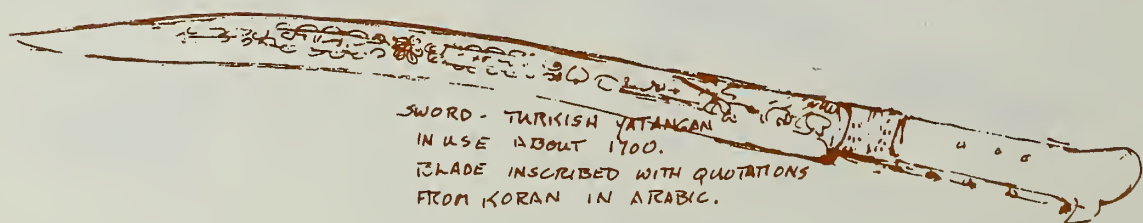 SWORD - TURKISH YATANGAN
IN USE ABOUT 1700.
BLADE INSCRIBED WITH QUOTATIONS
FROM KORAN IN ARABIC.